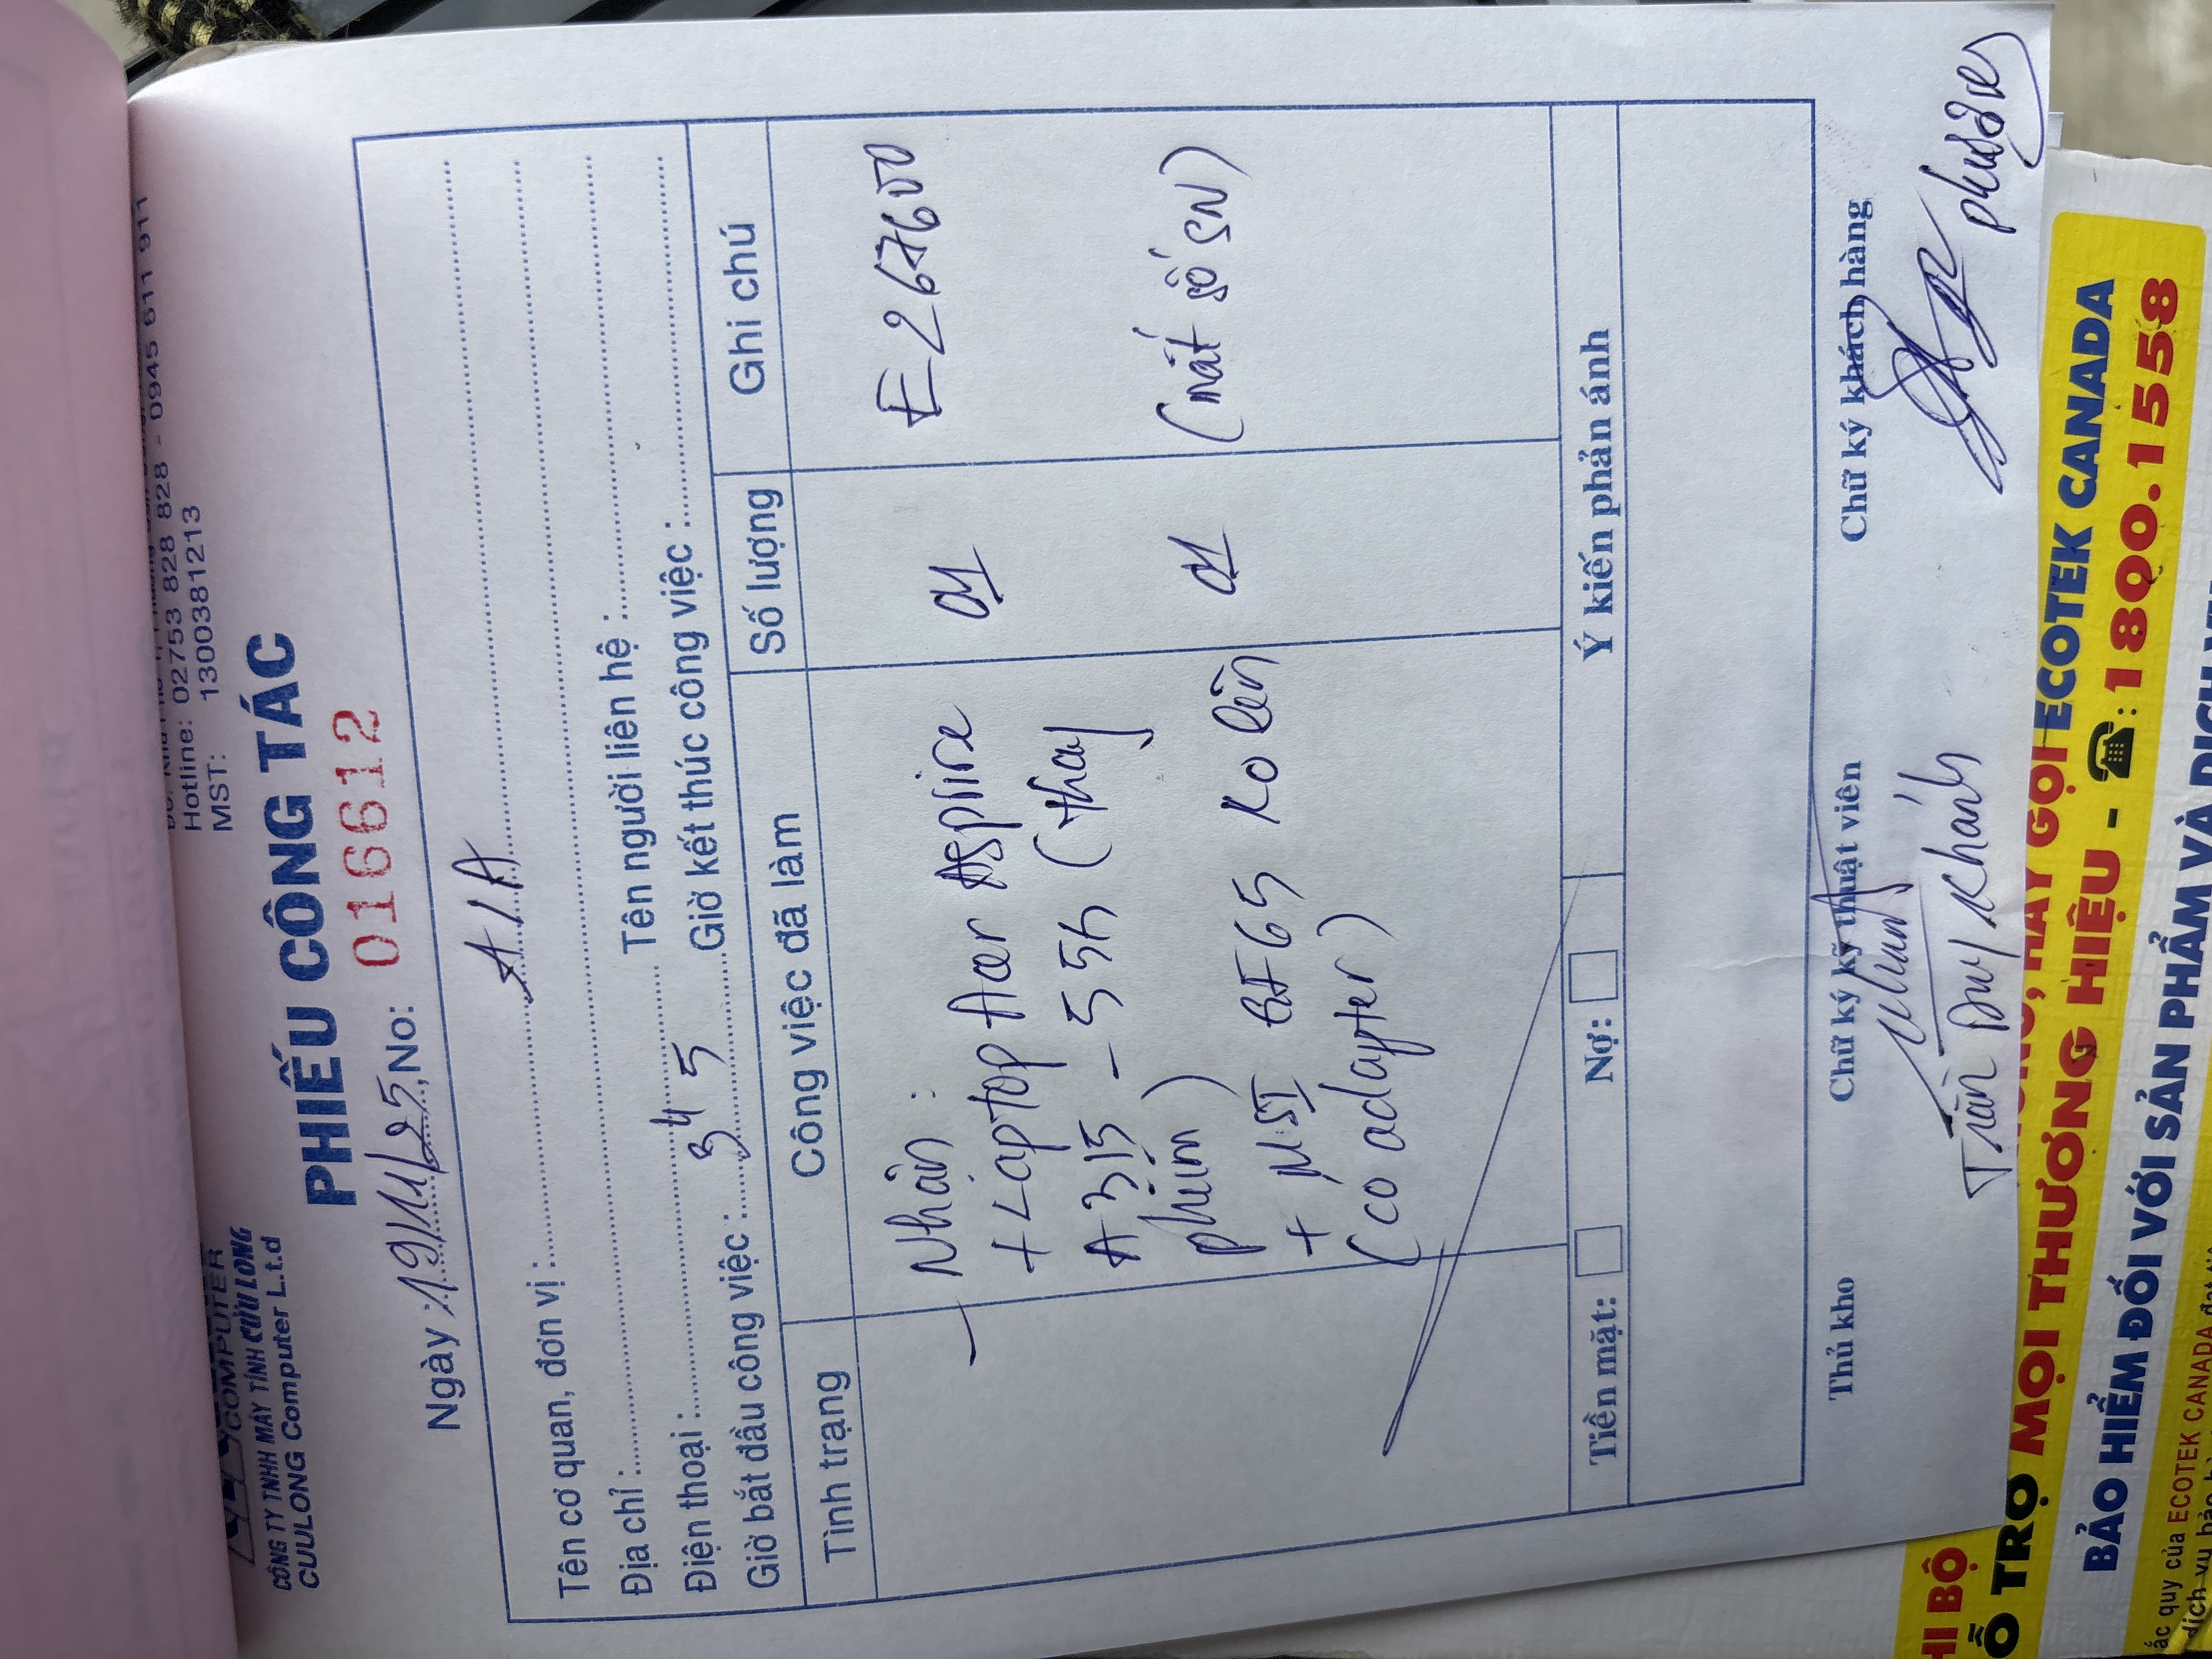 COMPUTER
CÔNG TY TNHH MÁY TÍNH CỬU LONG
CUULONG Computer L.t.d
Hotline: 02753 828 828 - 0945 611 911
MST: 1300381213
PHIẾU CÔNG TÁC
Ngày: 19/11/25, No: 016612
Tên cơ quan, đơn vị: AIA
Địa chỉ:
Điện thoại: Tên người liên hệ:
Giờ bắt đầu công việc: 3 45 Giờ kết thúc công việc:
Tình trạng Công việc đã làm Số lượng Ghi chú
- Nhận:
+ Laptop Acer Aspire 01 E267600
A315 - 55h (thay
phím)
+ MSI GF65 ko lên 01 (mất số SN)
(có adapter)
Tiền mặt: Nợ: Ý kiến phản ánh
Thủ kho Chữ ký kỹ thuật viên Chữ ký khách hàng
Khanh
Trần Duy Khánh
HI BỘ
Ỗ TRỢ MỌI THƯƠNG HIỆU - ☎:1800.1558
HÃY GỌI ECOTEK CANADA
BẢO HIỂM ĐỐI VỚI SẢN PHẨM VÀ DỊCH
ắc quy của ECOTEK CANADA đạt